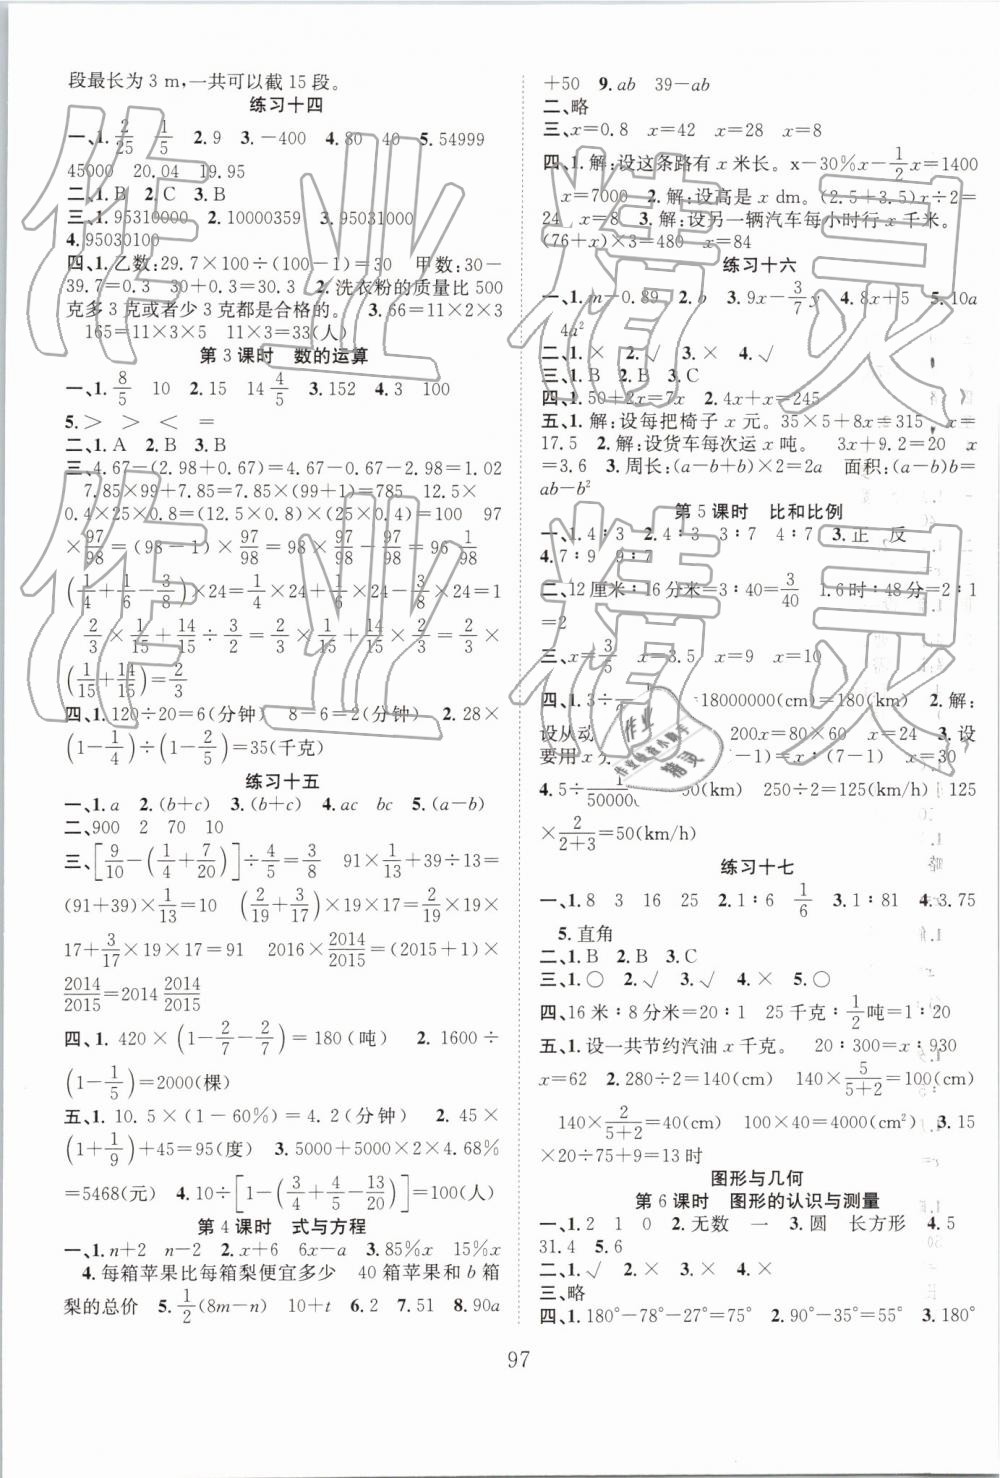 段最长为 3 m,一共可以截 15 段。
练习十四
一、1. 2/25 1/5 2. 9 3. －400 4. 80 40 5. 54999
45000 20.04 19.95
二、1. B 2. C 3. B
三、1. 95310000 2. 10000359 3. 95031000
4. 95030100
四、1. 乙数:29.7×100÷(100－1)=30 甲数:30－
39.7=0.3 30+0.3 2. 洗衣粉的质量比 500
克多 3 克或者少 3 克都是合格的。 3. 66=11×2×3
165=11×3×5 11×3=33(人)
第 3 课时 数的运算
一、1. 8/5 10 2. 15 14 4/5 3. 152 4. 3 100
5. > > < =
二、1. A 2. B 3. B
三、4.67－(2.98+0.67)=4.67－0.67－2.98=1.02
7.85×99+7.85=7.85×(99+1)=785 12.5×
0.4×25×0.8=(12.5×0.8)×(0.4×25)=100 97
×97/98=(98－1)×97/98=98×97/98－97/98=96 1/98
(1/4+1/6－3/8)×24=1/4×24+1/6×24－3/8×24=1
2/3×1/15+14/15÷3/2=2/3×1/15+14/15×2/3=2/3×
(1/15+14/15)=2/3
四、1. 120÷20=6(分钟) 8－6=2(分钟) 2. 28×
(1－1/4)÷(1－2/5)=35(千克)
练习十五
一、1. a 2. (b+c) 3. (b+c) 4. ac bc 5. (a－b)
二、900 2 70 10
三、[9/10－(1/4+7/20)]÷4/5=3/8 91×1/13+39÷13=
(91+39)×1/13=10 (2/19+3/17)×19×17=2/19×19×
17+3/17×19×17=91 2016×2014/2015=(2015+1)×
2014/2015=2014 2014/2015
四、1. 420×(1－2/7－2/7)=180(吨) 2. 1600÷
(1－1/5)=2000(棵)
五、1. 10.5×(1－60%)=4.2(分钟) 2. 45×
(1+1/9)+45=95(度) 3. 5000+5000×2×4.68%
=5468(元) 4. 10÷[1－(3/4+4/5－13/20)]=100(人)
第 4 课时 式与方程
一、1. n+2 n－2 2. x+6 6x－a 3. 85%x 15%x
4. 每箱苹果比每箱梨便宜多少 40 箱苹果和 b 箱
梨的总价 5. 1/2(8m－n) 10+t 6. 2 7. 51 8. 90a
+50 9. ab 39－ab
二、略
三、x=0.8 x=42 x=28 x=8
四、1. 解:设这条路有 x 米长。x－30%x－1/2x=1400
x=7000 2. 解:设高是 x dm。(2.5+3.5)x÷2=
24 x=8 3. 解:设另一辆汽车每小时行 x 千米。
(76+x)×3=480 x=84
练习十六
一、1. m－0.89 2. b 3. 9x－3/7y 4. 8x+5 5. 10a
4a²
二、1. × 2. √ 3. × 4. √
三、1. B 2. B 3. C
四、1. 50+2x=7x 2. 4x+x=245
五、1. 解:设每把椅子 x 元。35×5+8x=315 x=
17.5 2. 解:设货车每次运 x 吨。 3x+9.2=20 x
=3.6 3. 周长:(a－b+b)×2=2a 面积:(a－b)b=
ab－b²
第 5 课时 比和比例
一、1. 4∶3 2. 4∶3 3∶7 4∶7 3. 正 反
4. 7∶9 9∶7
二、12 厘米∶16 分米=3∶40=3/40 1.6 时∶48 分=2∶1
=2
三、x=3/5 x=3.5 x=9 x=10
四、1. 3÷ =18000000(cm)=180(km) 2. 解:
设从动 200x=80×60 x=24 3. 设
要用 x =30
4. 5÷ 50(km) 250÷2=125(km/h) 125
×2/(2+3)=50(km/h)
练习十七
一、1. 8 3 16 25 2. 1∶6 1/6 3. 1∶81 4. 3.75
5. 直角
二、1. B 2. B 3. C
三、1. ○ 2. √ 3. √ 4. × 5. ○
四、16 米∶8 分米=20∶1 25 千克∶1/2吨=1∶20
五、1. 设一共节约汽油 x 千克。 20∶300=x∶930
x=62 2. 280÷2=140(cm) 140×5/(5+2)=100(cm)
140×2/(5+2)=40(cm) 100×40=4000(cm²) 3. 15
×20÷75+9=13 时
图形与几何
第 6 课时 图形的认识与测量
一、1. 2 1 0 2. 无数 一 3. 圆 长方形 4. 5
31.4 5. 6
二、1. √ 2. × 3. × 4. ×
三、略
四、1. 180°－78°－27°=75° 2. 90°－35°=55° 3. 180°
97
作业精灵
作业精灵